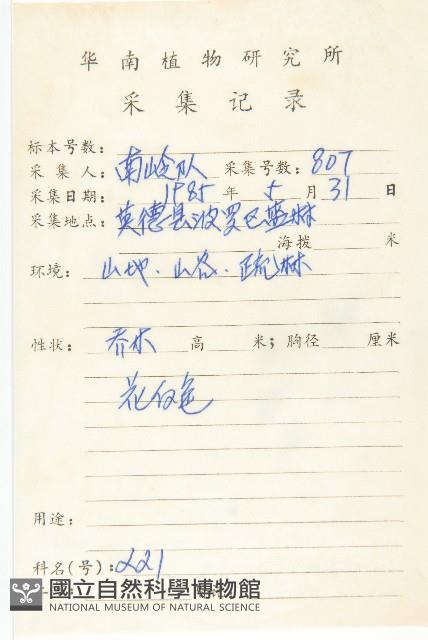 华南植物研究所
采集记录
标本号数:
采集人: 南岭队 采集号数: 807
采集日期: 1985 年 5 月 31 日
采集地点: 英德县波罗区 林
海拔 米
环境: 山地、山谷、疏林
性状: 乔木 高 米; 胸径 厘米
花白色
用途:
科名(号): 221
國立自然科學博物館
NATIONAL MUSEUM OF NATURAL SCIENCE